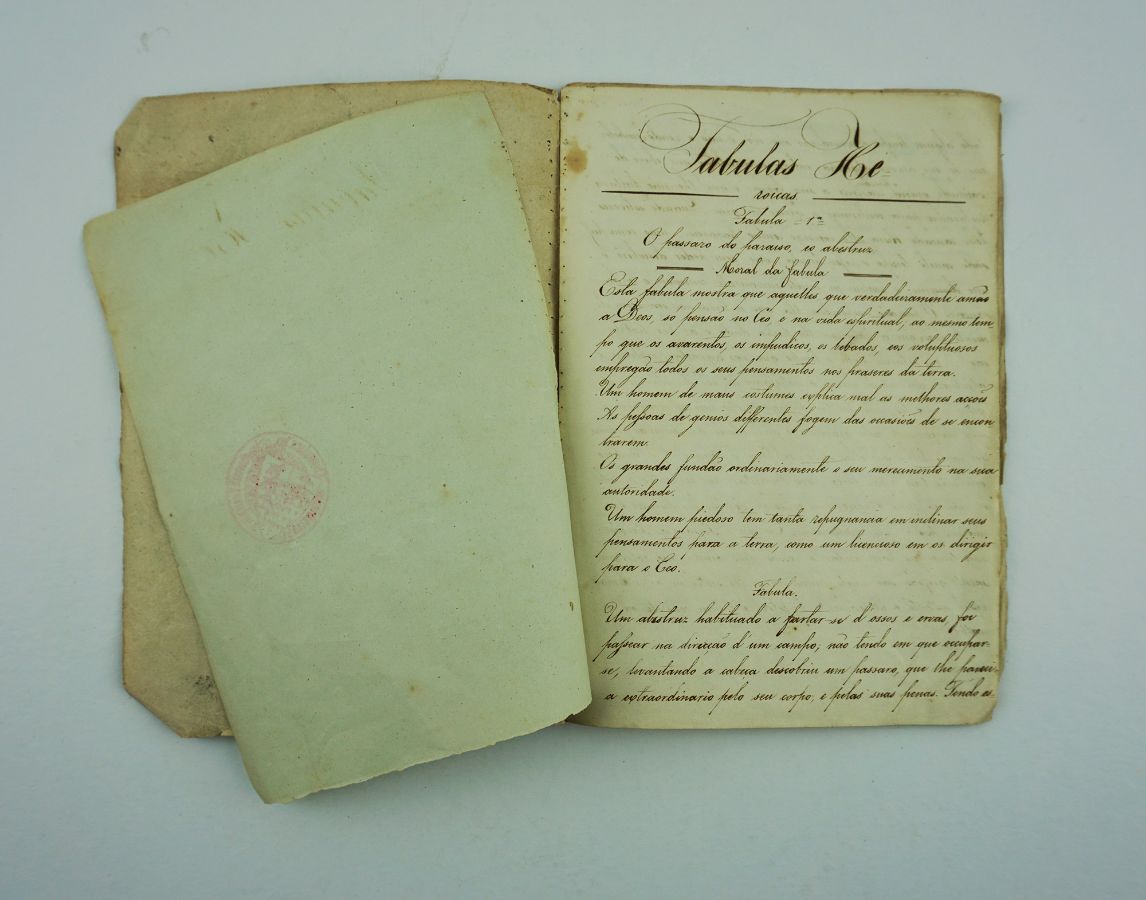 Fabulas He=
roicas
Fabula = 1ª =
O passaro do paraiso, eo abestruz
Moral da fabula
Esta fabula mostra que aquelles que verdadeiramente amão
a Deos, só pensão no Ceo, e na vida espiritual; ao mesmo tem
po que os avarentos, os impudicos, os bebados, eos voluptuosos
empregão todos os seus pensamentos nos praseres da terra.
Um homem de maus costumes explica mal as melhores acções
As pessoas de genios differentes fogem das occasiões de se encon
trarem.
Os grandes fundão ordinariamente o seu merecimento na sua
autoridade.
Um homem piedoso tem tanta repugnancia em inclinar seus
pensamentos para a terra, como um licencioso em os dirigir
para o Ceo.
Fabula.
Um abestruz habituado a fartar-se d'ossos e ervas, foi
passear na direcção d'um campo; não tendo em que occupar-
se, levantando a cabeça descobriu um passaro, que lhe pareci-
a extraordinario pelo seu corpo, e pelas suas penas. Tendo es-